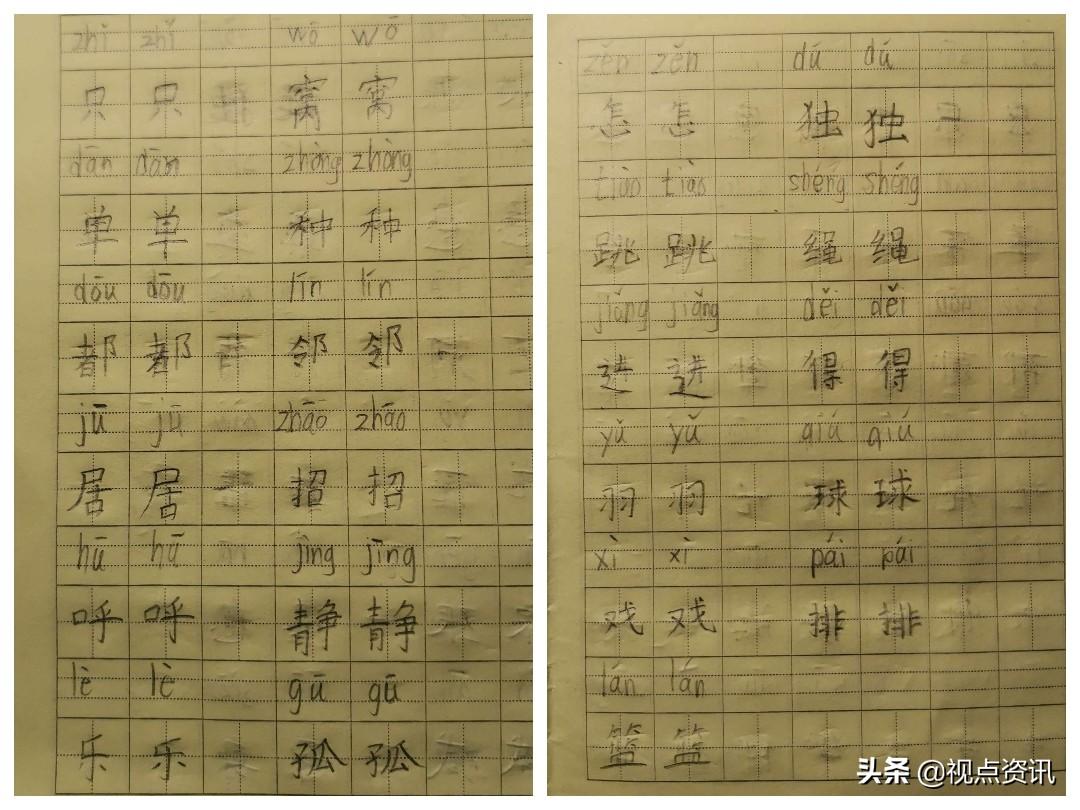 zhǐ zhǐ wō wō
只 只 窝 窝
dān dān zhǒng zhǒng
单 单 种 种
dōu dōu lín lín
都 都 邻 邻
jū jū zhāo zhāo
居 居 招 招
hū hū jìng jìng
呼 呼 静 静
lè lè gū gū
乐 乐 孤 孤
zěn zěn dú dú
怎 怎 独 独
tiào tiào shéng shéng
跳 跳 绳 绳
jiǎng jiǎng děi děi
进 进 得 得
yǔ yǔ qiú qiú
羽 羽 球 球
xì xì pái pái
戏 戏 排 排
lán lán
篮 篮
头条 @视点资讯